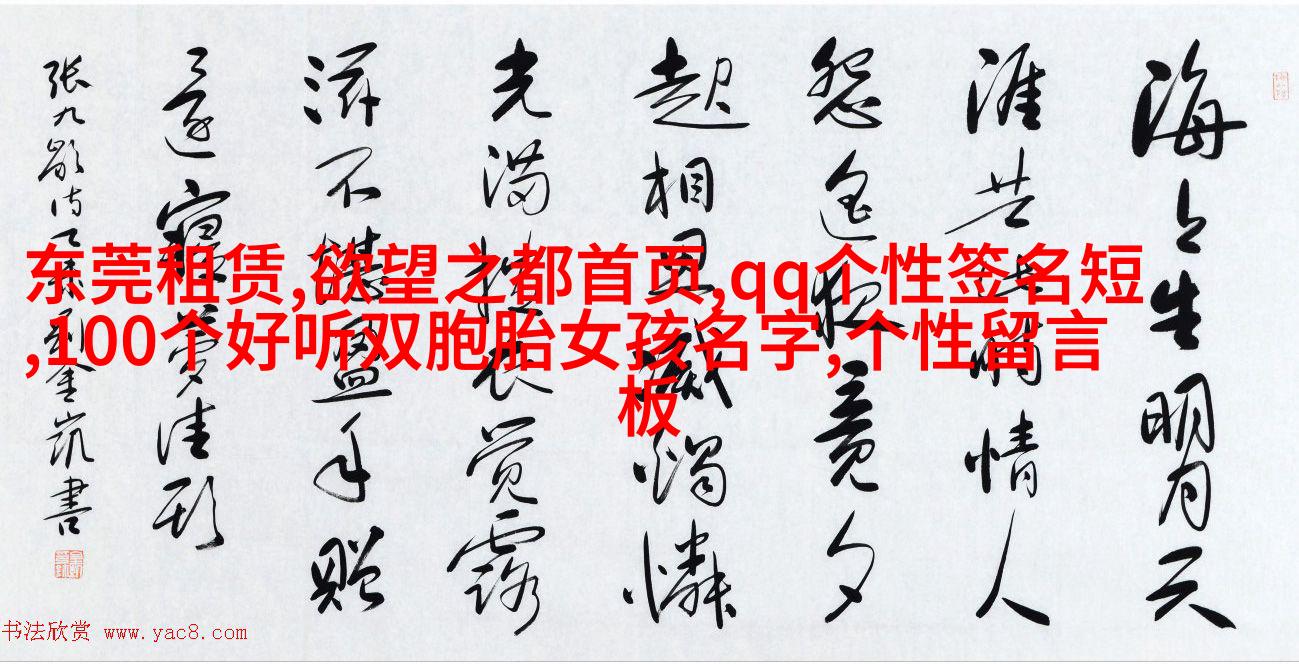 海上生明月天
涯共此时情人
怨遥夜竟夕
起相思灭燭憐
光满披衣觉露
滋不堪盈手贈
还寝梦佳期
张九龄诗一首刘金凯書
东莞租赁,欲望之都首页,qq个性签名短
,100个好听双胞胎女孩名字,个性留言
板
书法欣赏 www.yac8.com